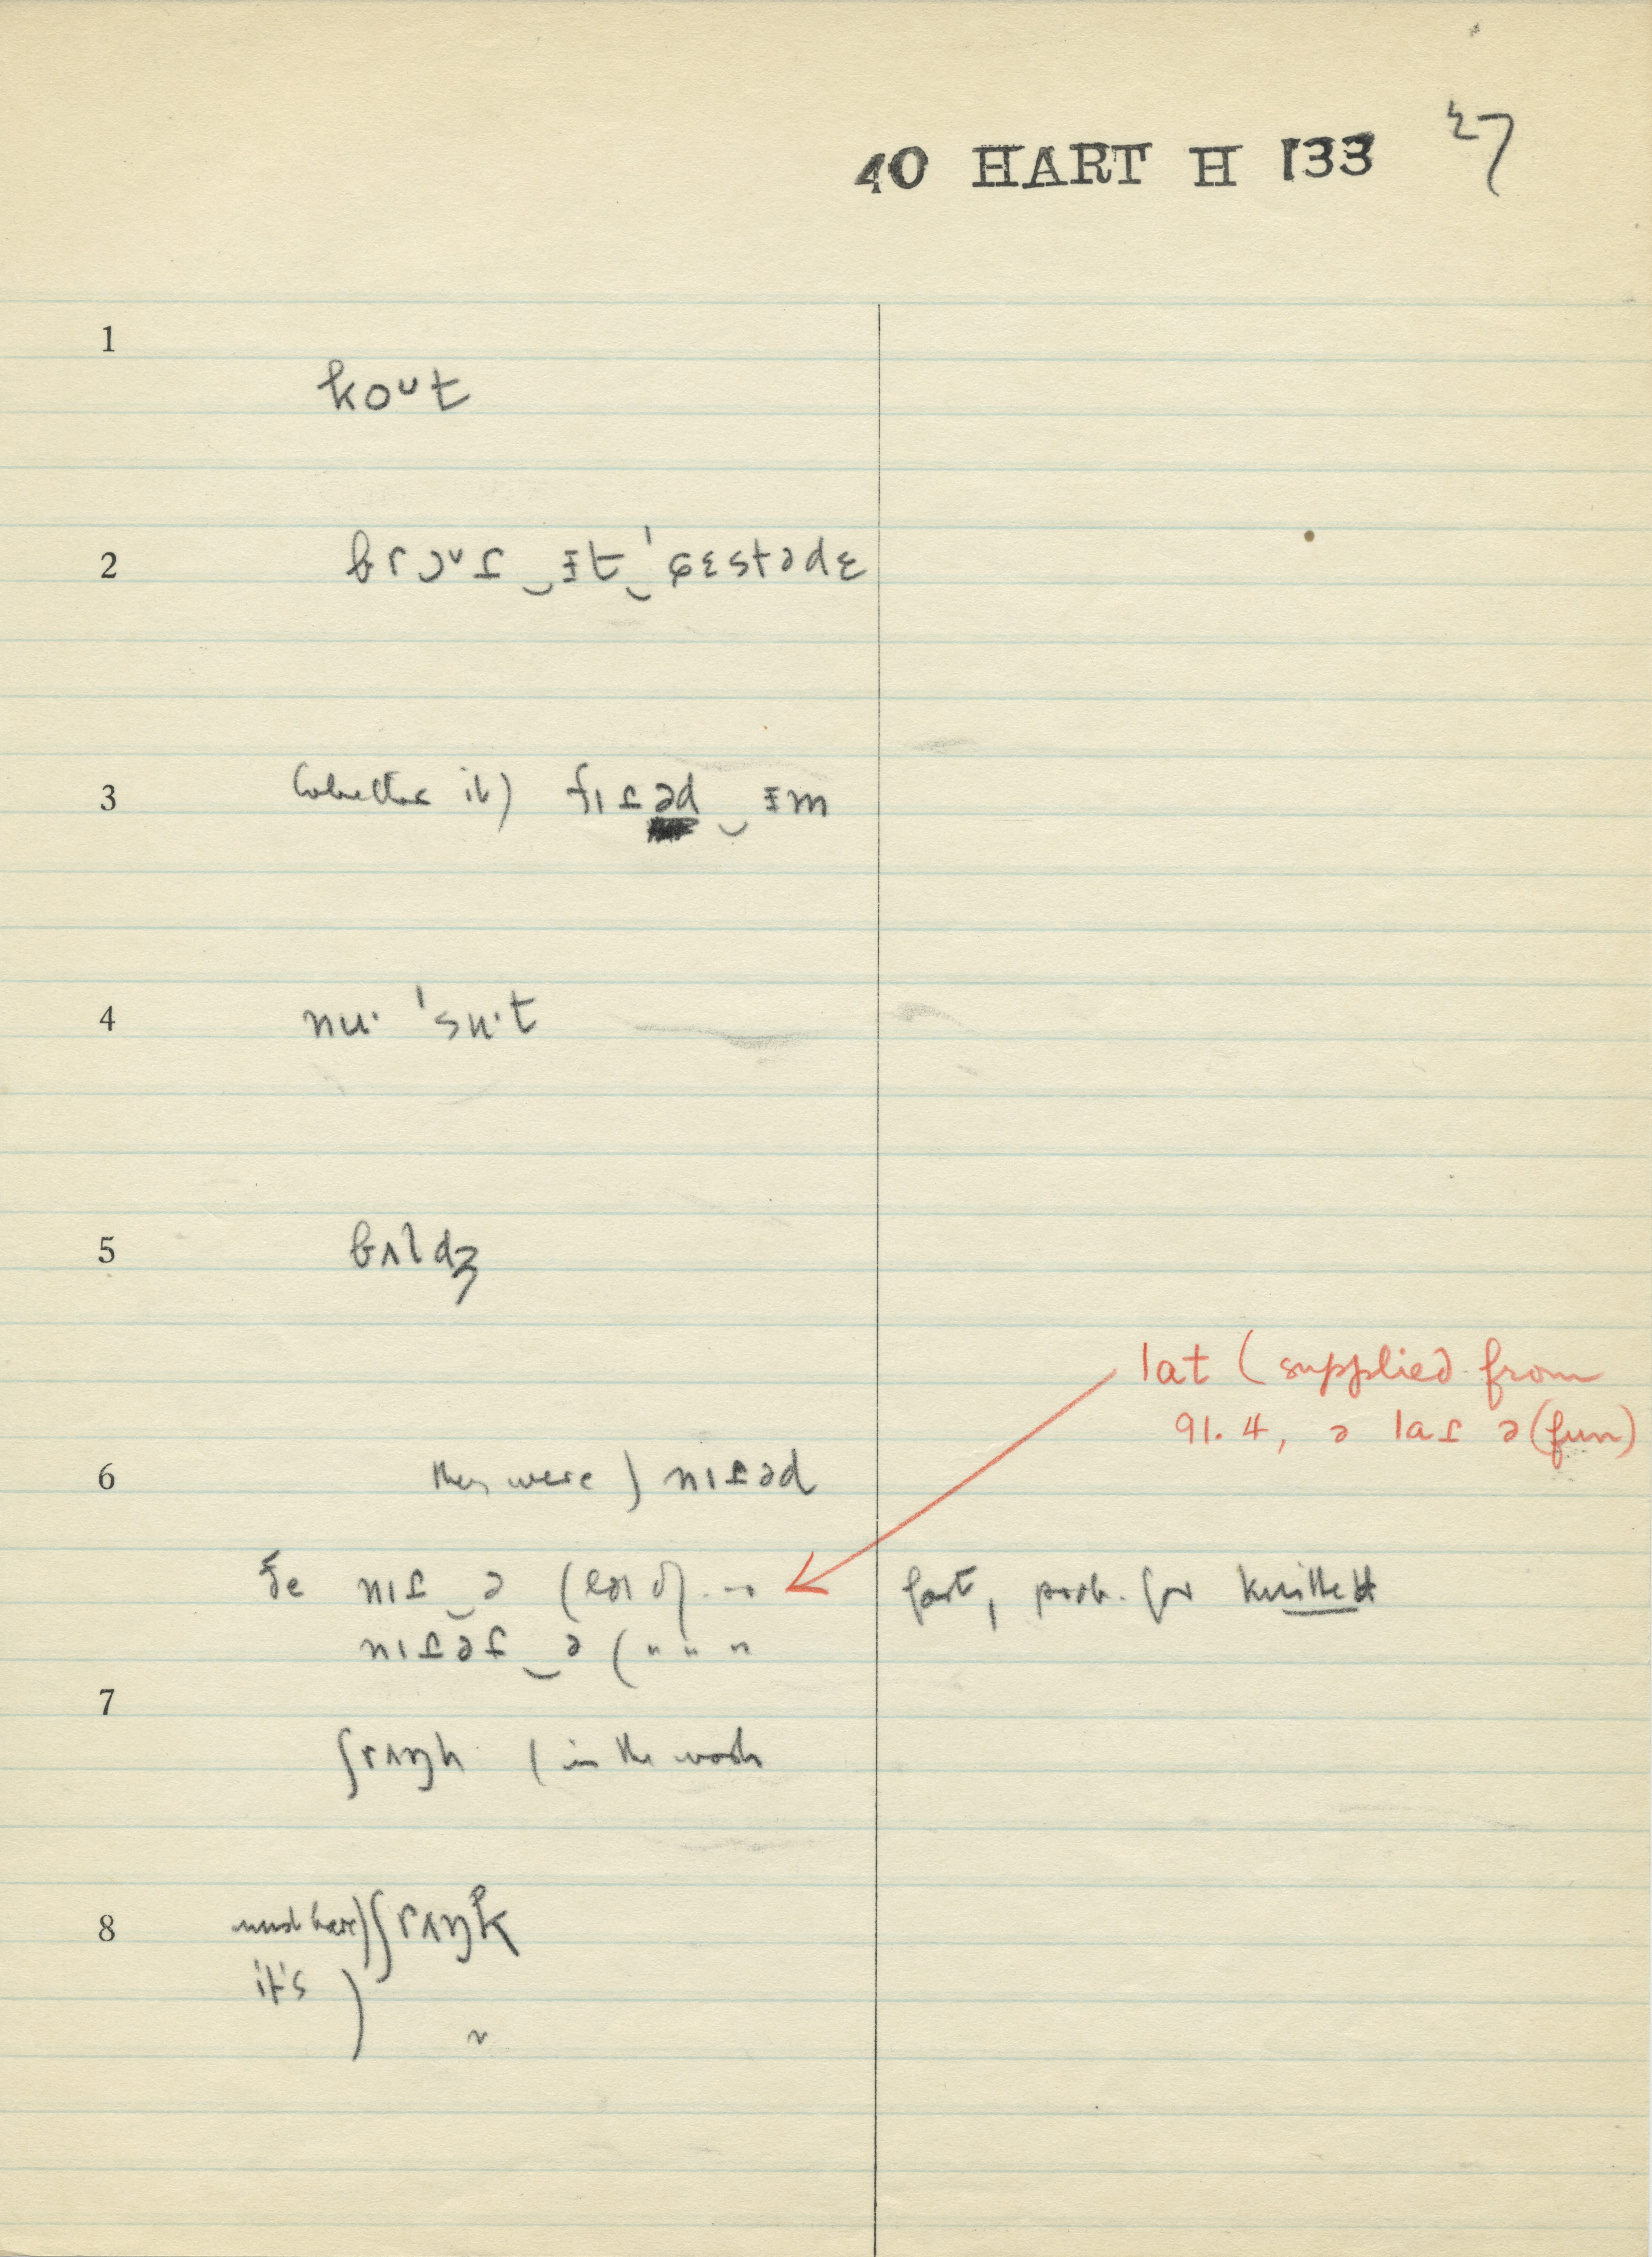 40 HART H 133 27
1
koᵘt
2
brɔᵛɾ‿ɪt‿ˈgɛstədɛ
3
(whether it) fɪɾəd‿ɪm
4
nuˑ ˈsuˑt
5
bʌldʒ
lat (supplied from
91. 4, ə laɾ ə (fun)
6
they were) nɪɾəd
ʃe nɪɾ‿ə
nɪɾəɾ‿ə ( " " "
fast, prob. for knitted
7
ʃrʌŋk (in the wash
8
must have) ʃrʌŋk
it's ) "